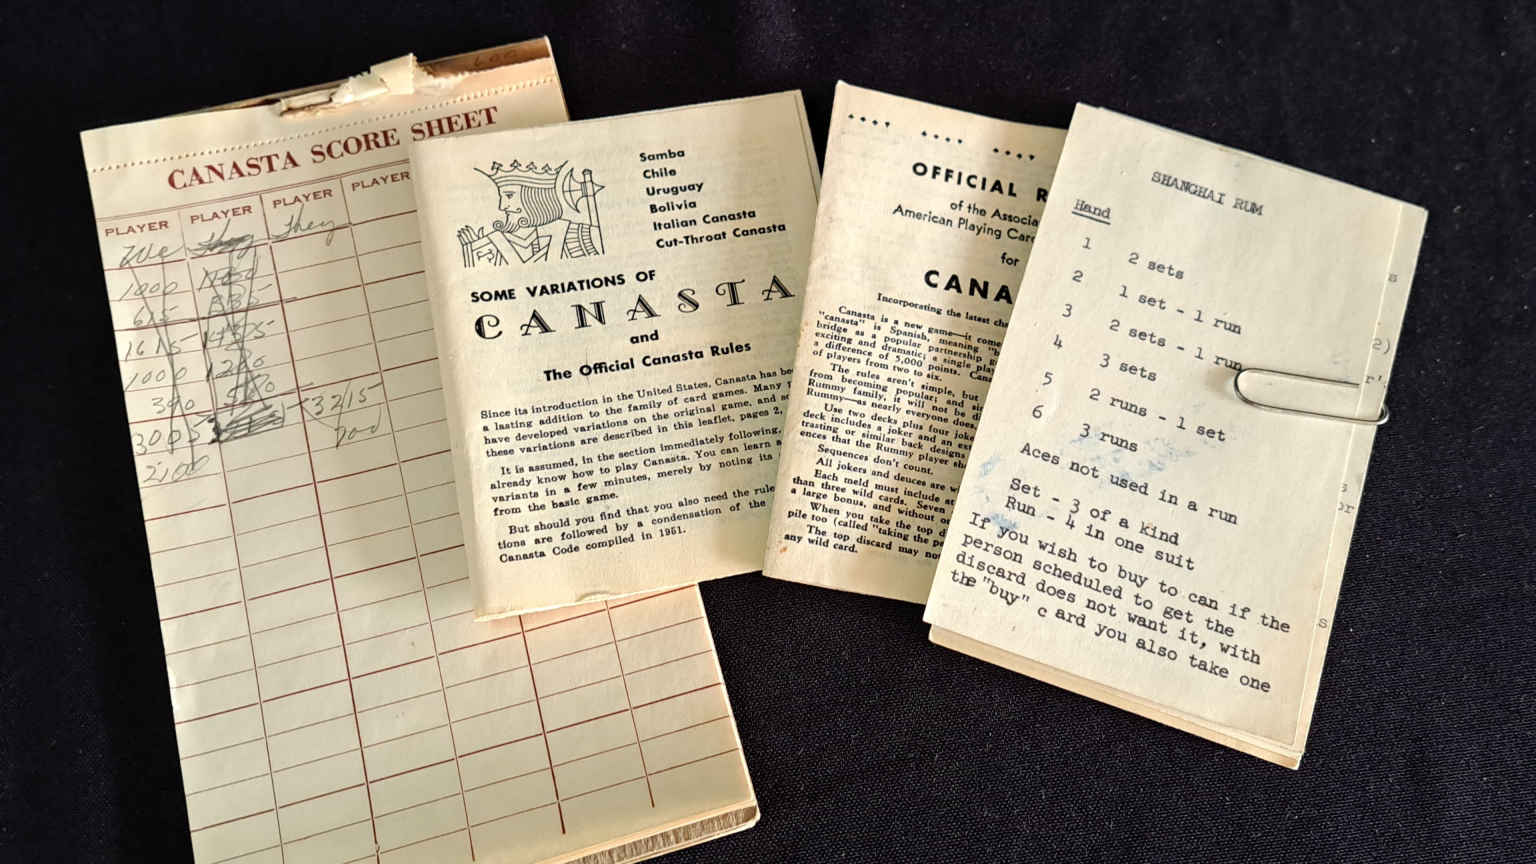 CANASTA SCORE SHEET
PLAYER PLAYER PLAYER PLAYER
We They They
1000
615
1615
1000
3005
2100
3215
700
Samba
Chile
Uruguay
Bolivia
Italian Canasta
Cut-Throat Canasta
SOME VARIATIONS OF
CANASTA
and
The Official Canasta Rules
Since its introduction in the United States, Canasta has
a lasting addition to the family of card games. Many
have developed variations on the original game, and
these variations are described in this leaflet, pages 2,
It is assumed, in the section immediately following,
already know how to play Canasta. You can learn
variants in a few minutes, merely by noting its
from the basic game.
But should you find that you also need the rule
tions are followed by a condensation of the
Canasta Code compiled in 1951.
OFFICIAL R
of the Associa
American Playing Car
for
CANA
Incorporating the latest
Canasta is a new game—it
"canasta" is Spanish, meaning
bridge as a popular partnership
exciting and dramatic; a single
a difference of 5,000 points.
of players from two to six.
The rules aren't simple, but
from becoming popular; and
Rummy family, it will not be
Rummy—as nearly everyone does.
Use two decks plus four
deck includes a joker and an
trasting or similar back designs
ences that the Rummy player
Sequences don't count.
All jokers and deuces are
Each meld must include at
than three wild cards. Seven
a large bonus, and without
When you take the top
pile too (called "taking the
The top discard may
any wild card.
SHANGHAI RUM
Hand
1 2 sets
2 1 set - 1 run
3 2 sets - 1 run
4 3 sets
5 2 runs - 1 set
6 3 runs
Aces not used in a run
Set - 3 of a kind
Run - 4 in one suit
If you wish to buy to can if the
person scheduled to get the
discard does not want it, with
the "buy" c ard you also take one